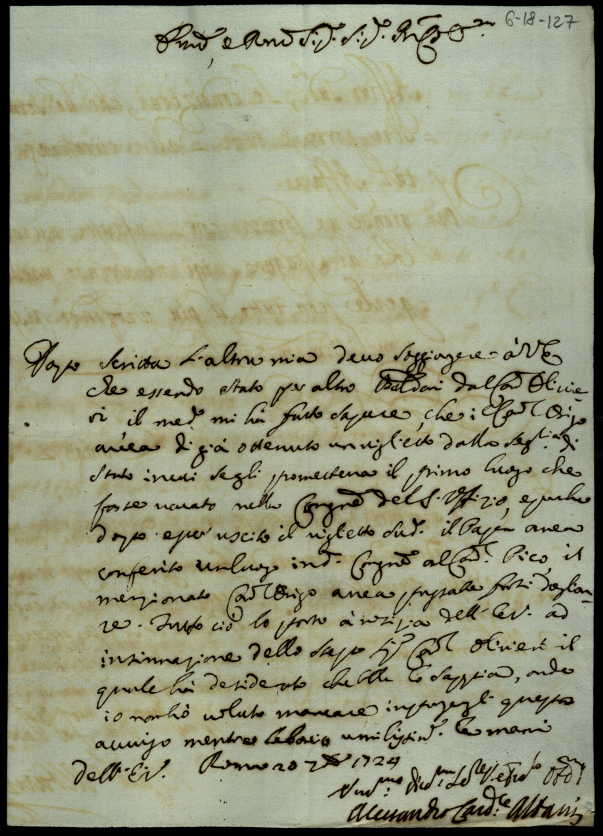 6-18-127
Em̃o, e Rmo Sig.r Sig.r
Dopo scritta l'altra mia devo soggiongere à V.E.
che essendo stato per altro dal Car.l Olivie-
ri il med.o mi hà fatto sapere, che il Car.l Origo
avea di già ottenuto un viglietto dalla Seg.ria di
Stato in cui se gli prometteva il primo luogo che
fosse vacato nella Congne del S. Offizio, e perche
dopo esser uscito il viglietto sud.o il Papa avea
conferito un luogo in d.a Congne al Car.l Pico, il
menzionato Car.l Origo avea passate forti doglian-
ze. Tutto ciò lo porto à notizia dell'E.V. ad
insinuazione dello stesso Sig.r Car.l Olivieri il
quale hà desiderato che Ella lo sappia, onde
io non hò voluto mancare
avviso mentre le bacio umilissim.e le mani
dell'E.V. Roma 20 7bre 1724
Alessandro Card.le Albani